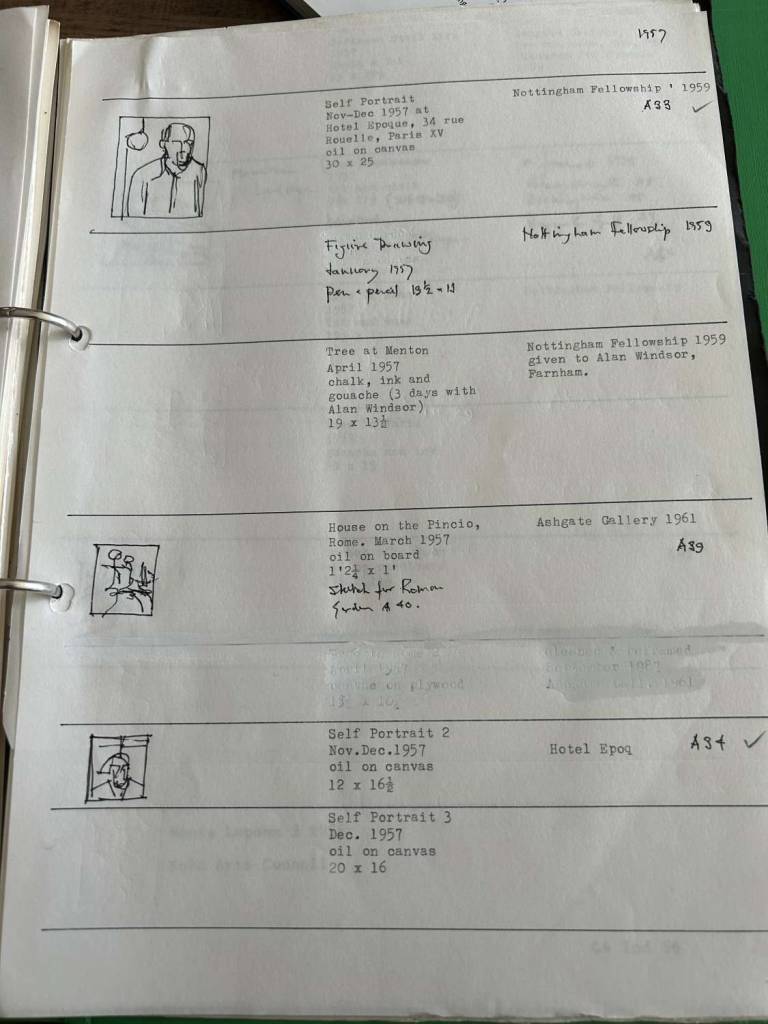 1957
Self Portrait
Nov-Dec 1957 at
Hotel Epoque, 34 rue
Rouelle, Paris XV
oil on canvas
30 x 25
Nottingham Fellowship ' 1959
A33 ✓
Figure Drawing
January 1957
Pen & pencil 19½ x
Nottingham Fellowship 1959
Tree at Menton
April 1957
chalk, ink and
gouache (3 days with
Alan Windsor)
19 x 13½
Nottingham Fellowship 1959
given to Alan Windsor,
Farnham.
House on the Pincio,
Rome. March 1957
oil on board
1'2¼ x 1'
Sketch for Roman
Garden A 40.
Ashgate Gallery 1961
A39
April 1957
on plywood
Cleaned & reframed
September 1987
Self Portrait 2
Nov.Dec.1957
oil on canvas
12 x 16½
Hotel Epoq
A34 ✓
Self Portrait 3
Dec. 1957
oil on canvas
20 x 16